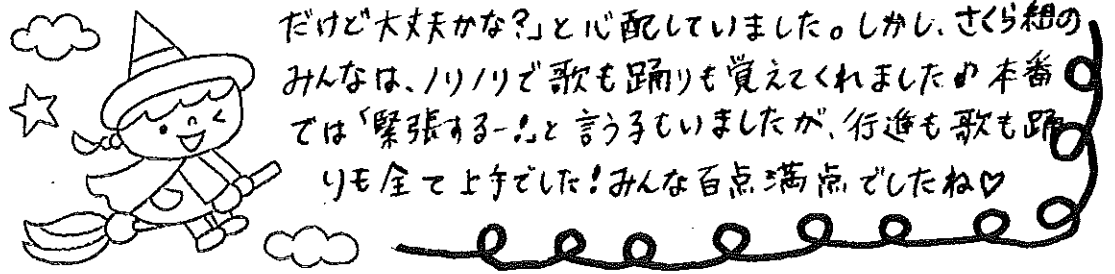 だけど大丈夫かな?」と心配していました。しかし、さくら組の
みんなは、ノリノリで歌も踊りも覚えてくれました♪本番
では「緊張するー!」と言う子もいましたが、行進も歌も踊
りも全て上手でした!みんな百点満点でしたね♡